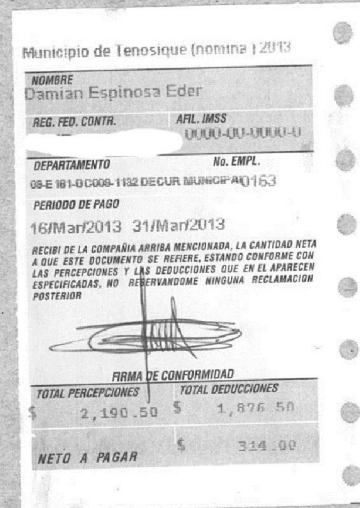 Municipio de Tenosique (nomina ) 2013
NOMBRE
Damian Espinosa Eder
REG. FED. CONTR. AFIL. IMSS
0000-00-0000-0
DEPARTAMENTO No. EMPL.
DECUR MUNICIPAL 0163
PERIODO DE PAGO
16/Mar/2013 31/Mar/2013
RECIBI DE LA COMPAÑIA ARRIBA MENCIONADA, LA CANTIDAD NETA
A QUE ESTE DOCUMENTO SE REFIERE, ESTANDO CONFORME CON
LAS PERCEPCIONES Y LAS DEDUCCIONES QUE EN EL APARECEN
ESPECIFICADAS, NO RESERVANDOME NINGUNA RECLAMACION
POSTERIOR
FIRMA DE CONFORMIDAD
TOTAL PERCEPCIONES TOTAL DEDUCCIONES
$ 2,190.50 $ 1,876.50
NETO A PAGAR $ 314.00